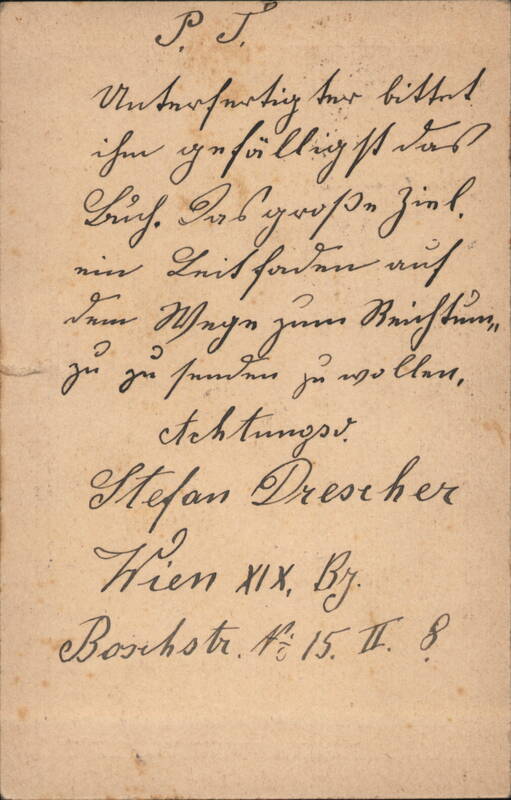 P. T.
Unterfertigter bittet
ihm gefälligst das
Buch. Das große Ziel.
ein Leitfaden auf
dem Wege zum Reichtum„
zu zu senden zu wollen.
Achtungsv.
Stefan Drescher
Wien XIX. Bz.
Boschstr. No 15. II. 8.